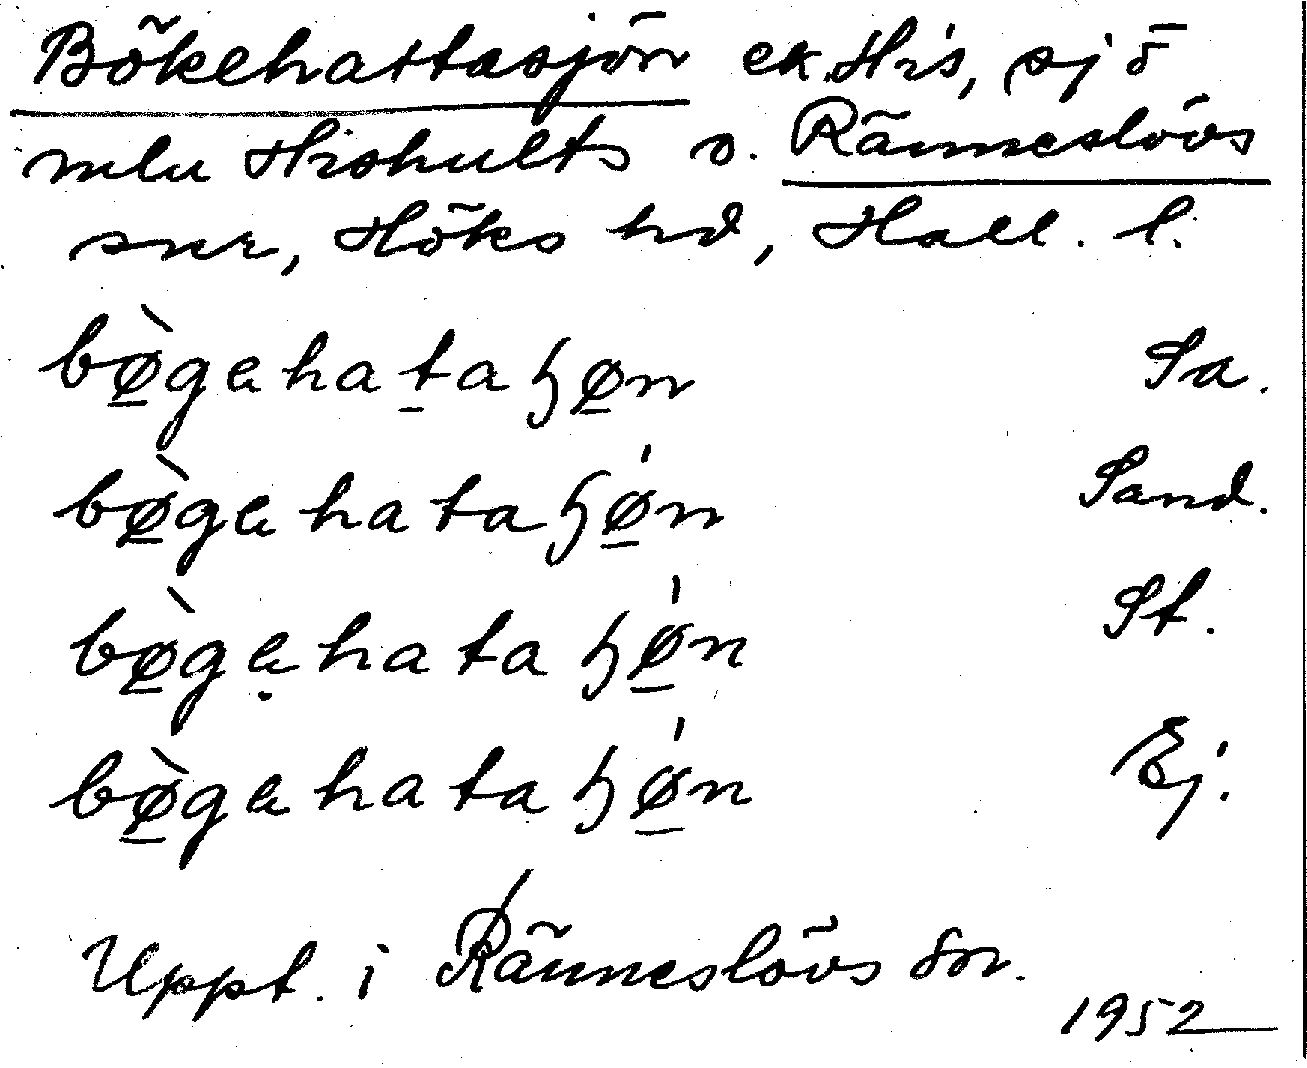 Bökehattasjön ek. Hi's, sjö
mlu Hishults o. Ränneslövs
snr, Höks hd, Hall. l.
bø̀gehataɧøn Sa.
bø̀gehataɧǿn Sand.
bø̀gẹhataɧǿn St.
bø̀gehataɧǿn Ej.
Uppt. i Ränneslövs sn.
1952